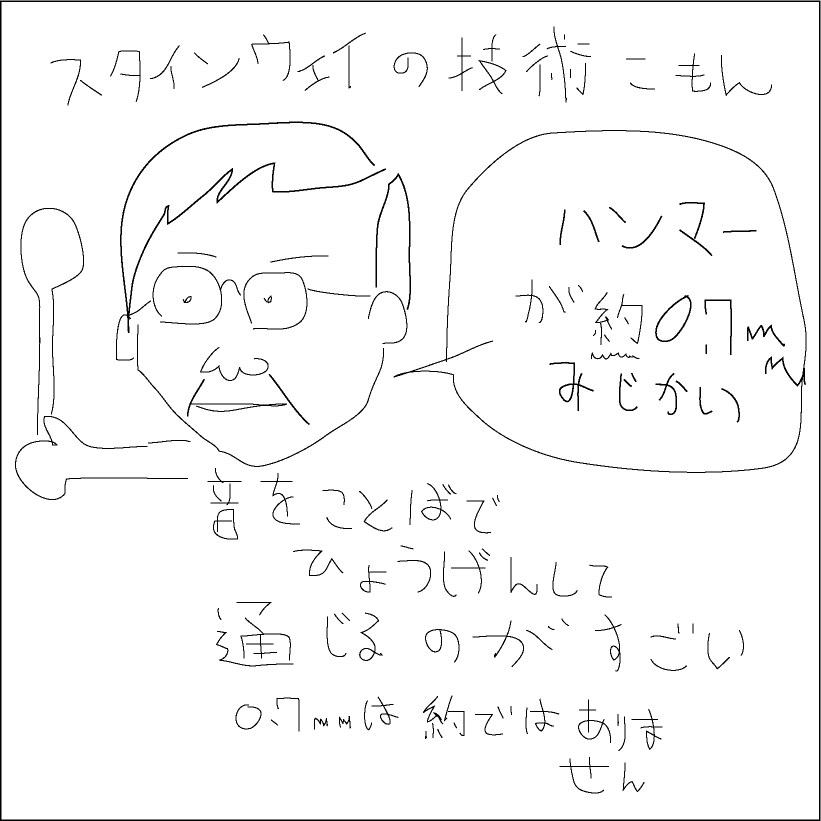 スタインウェイの技術こもん
ハンマー
が約0.7mm
みじかい
音をことばで
ひょうげんして
通じるのがすごい
0.7mmは約ではありま
せん